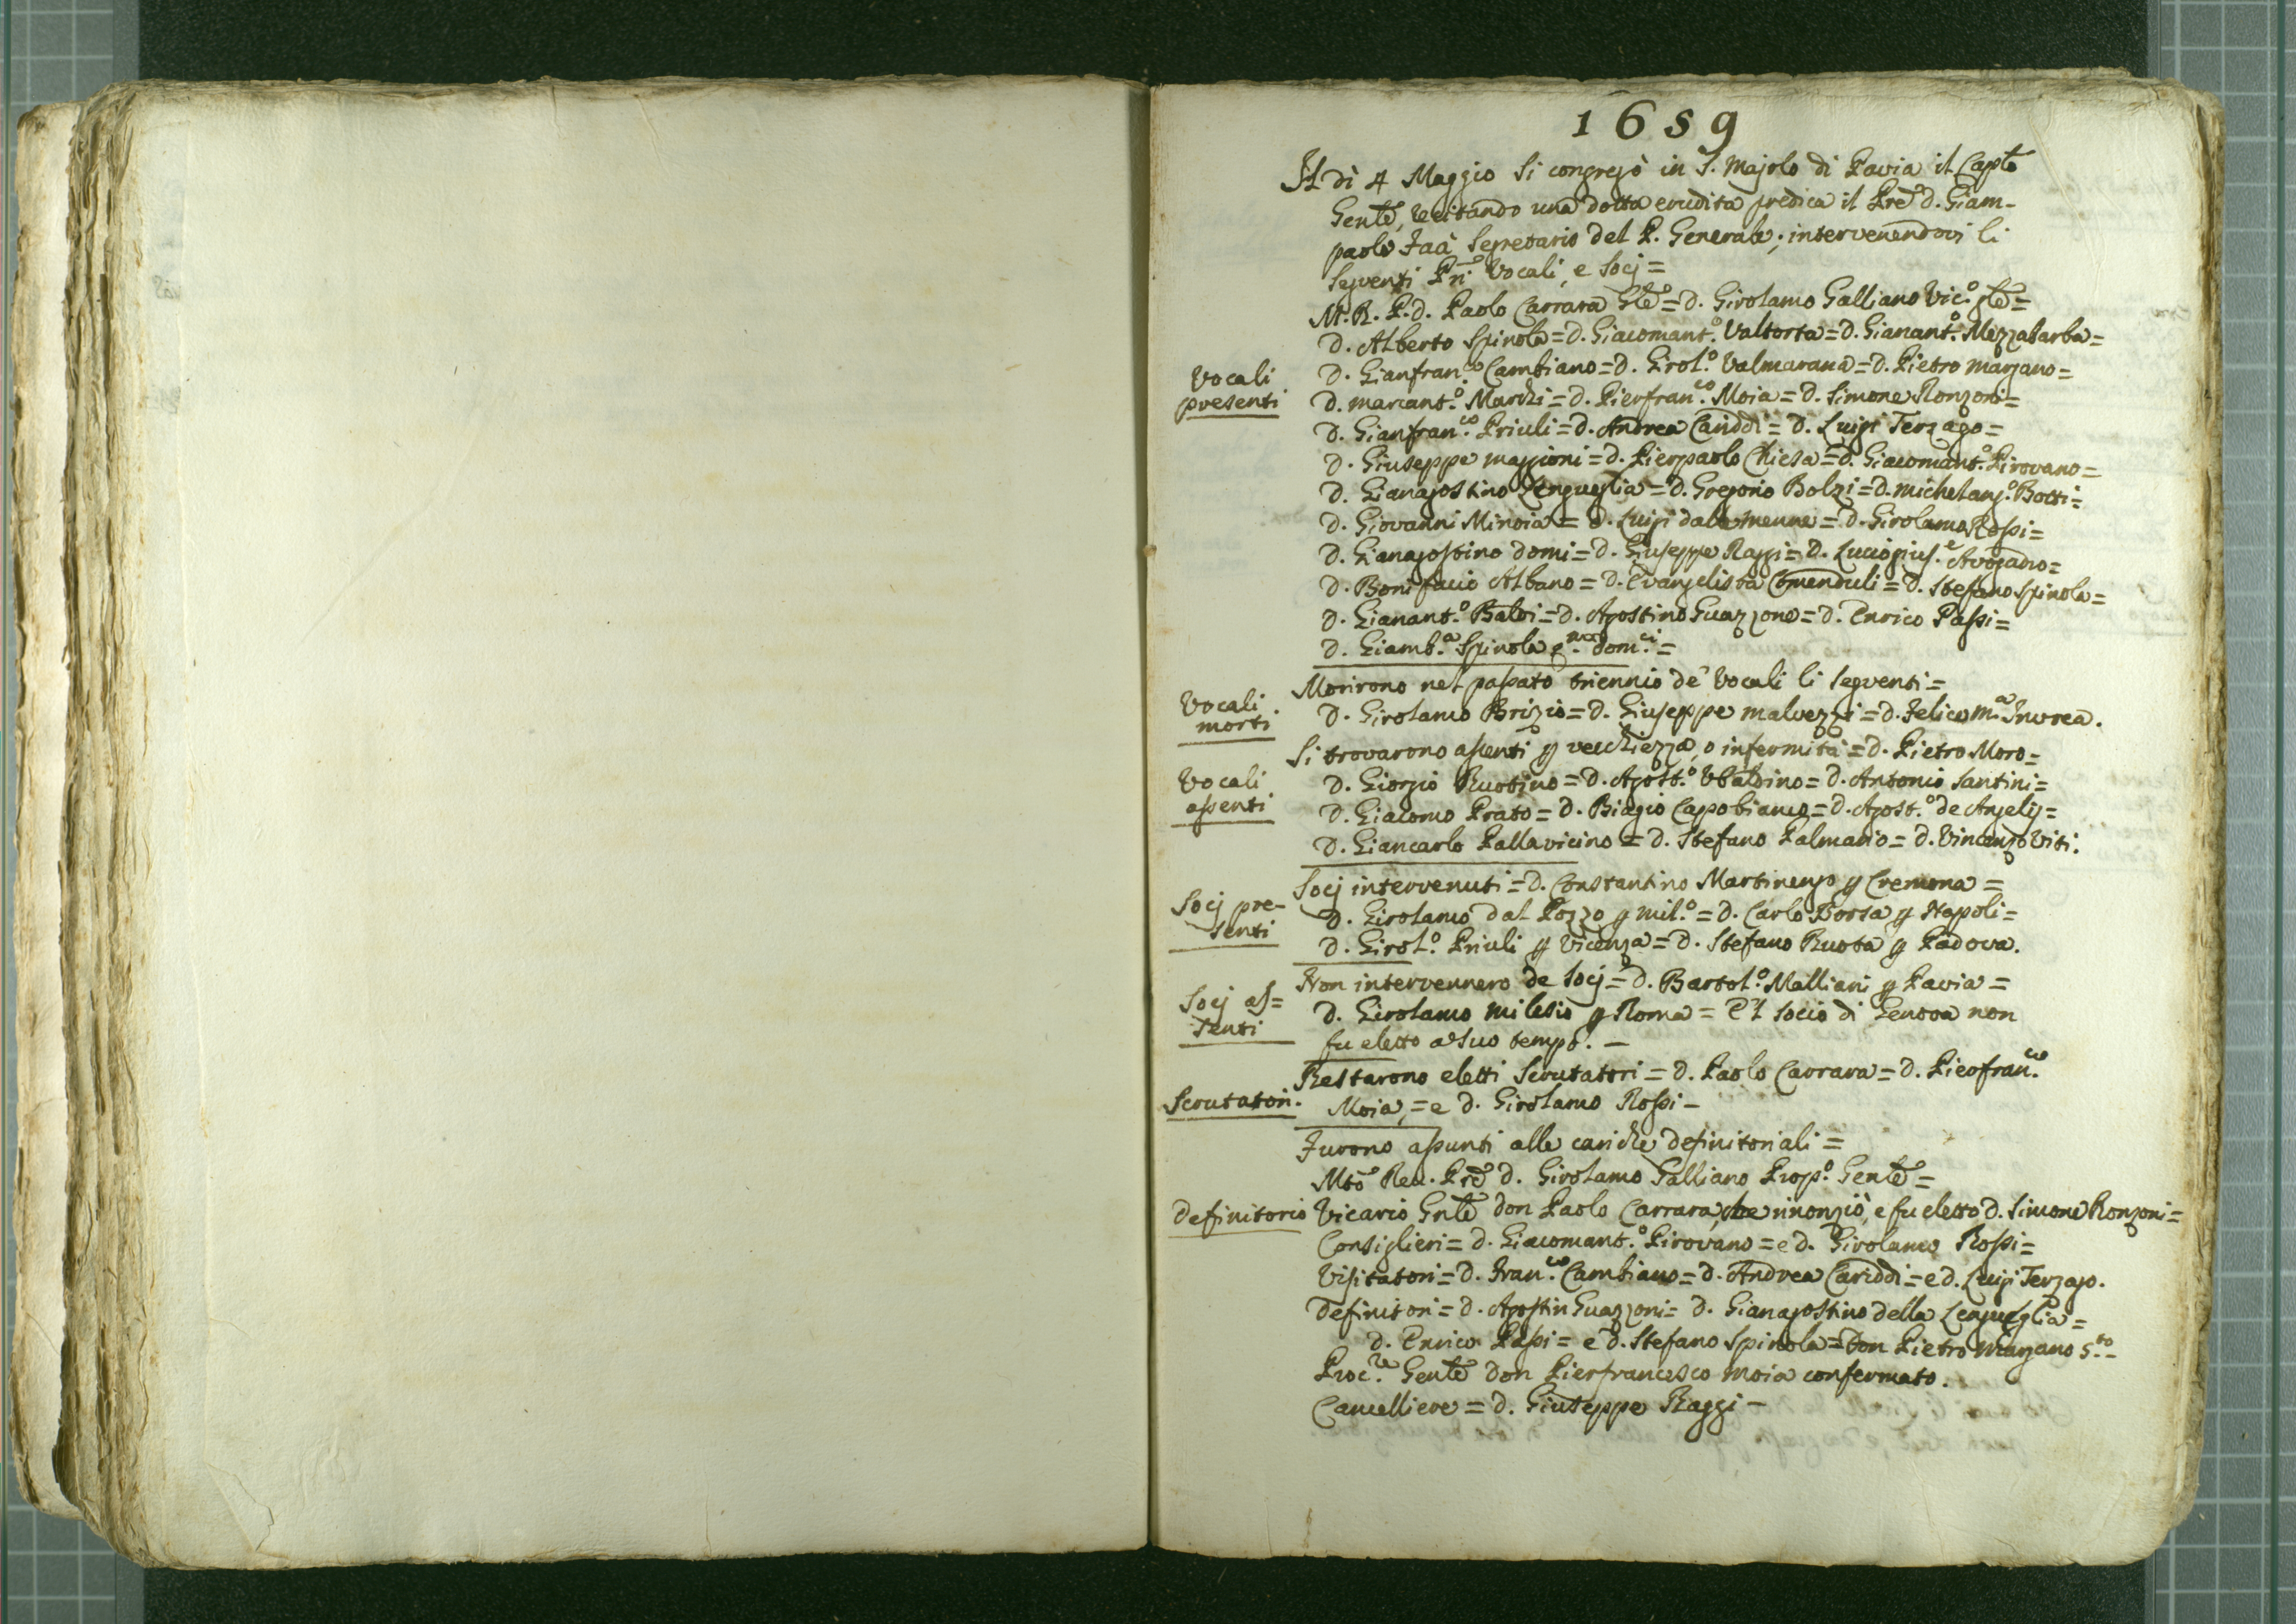 1659
Il dì 4 Maggio si congregò in S. Majolo di Pavia il Caplo
Genle, recitando una dotta erudita predica il Pre d. Giam-
paolo Faà Segretario del P. Generale; intervenendovi li
seguenti Pri Vocali, e Socj =
M. R. P. d. Paolo Carrara Gle = d. Girolamo Galliano Vic.o gle =
d. Alberto Spinola = d. Giacomant.o Valtorta = d. Gianant.o Mezzabarba =
Vocali
presenti
d. Gianfran.co Cambiano = d. Girol.o Valmarana = d. Pietro Marzano =
d. Marcant.o Marchi = d. Pierfran.co Moia = d. Simone Ronzoni =
d. Gianfran.co Priuli = d. Andrea Cariddi = d. Luigi Terzago =
d. Giuseppe Maggioni = d. Pierpaolo Chiesa = d. Giacomant.o Pirovano =
d. Gianagostino Lengueglia = d. Gregorio Bolzi = d. Michelang.o Botti =
d. Giovanni Minoia = d. Luigi dalamenna = d. Girolamo Rossi =
d. Gianagostino Domi = d. Giuseppe Raggi = d. Luciogius.e Avogadro =
d. Bonifacio Albano = d. Evangelista Comenduli = d. Stefano Spinola =
d. Gianant.o Balbi = d. Agostino Guazzone = d. Enrico Passi =
d. Giamb.a Spinola q.m dom.ci =
Vocali
morti
Morirono nel passato triennio de' Vocali li seguenti =
d. Girolamo Brizio = d. Giuseppe Malvezzi = d. Felice M.a Invrea.
Vocali
assenti
Si trovarono assenti p vecchiezza, o infermità = d. Pietro Moro =
d. Giorgio Ruotino = d. Agost.o Ubaldino = d. Antonio Santini =
d. Giacomo Prato = d. Biagio Capobianco = d. Agost.o de Angelis =
d. Giancarlo Pallavicino = d. Stefano Palmario = d. Vincenzo Viti.
Socj pre-
senti
Socj intervenuti = d. Constantino Martinengo p Cremona =
d. Girolamo dal Pozzo p Mil.o = d. Carlo Borsa p Napoli =
d. Girol.o Priuli p Vicenza = d. Stefano Ruota p Padova.
Socj as=
senti
Non intervennero de Socj = d. Bartol.o Malliani p Pavia =
d. Girolamo Milesio p Roma = E 'l socio di Genova non
fu eletto a suo tempo. -
Scrutatori.
Restarono eletti Scrutatori = d. Paolo Carrara = d. Pierfran.co
Moia, = e d. Girolamo Rossi -
Furono assunti alle cariche definitoriali =
Mto Reu. Pre d. Girolamo Galliano Prop.o Genle =
Definitorio
Vicario Gnle don Paolo Carrara, che rinonziò, e fu eletto d. Simone Ronzoni =
Consiglieri = d. Giacomant.o Pirovano = e d. Girolamo Rossi =
Visitatori = d. Fran.co Cambiano = d. Andrea Cariddi = e d. Luigi Terzago.
Definitori = d. Agostin Guazzoni = d. Gianagostino della Lengueglia =
d. Enrico Passi = e d. Stefano Spinola = Don Pietro Marzano 5.to -
Proc.re Genle don Pierfrancesco Moia confermato.
Cancelliere = d. Giuseppe Raggi -